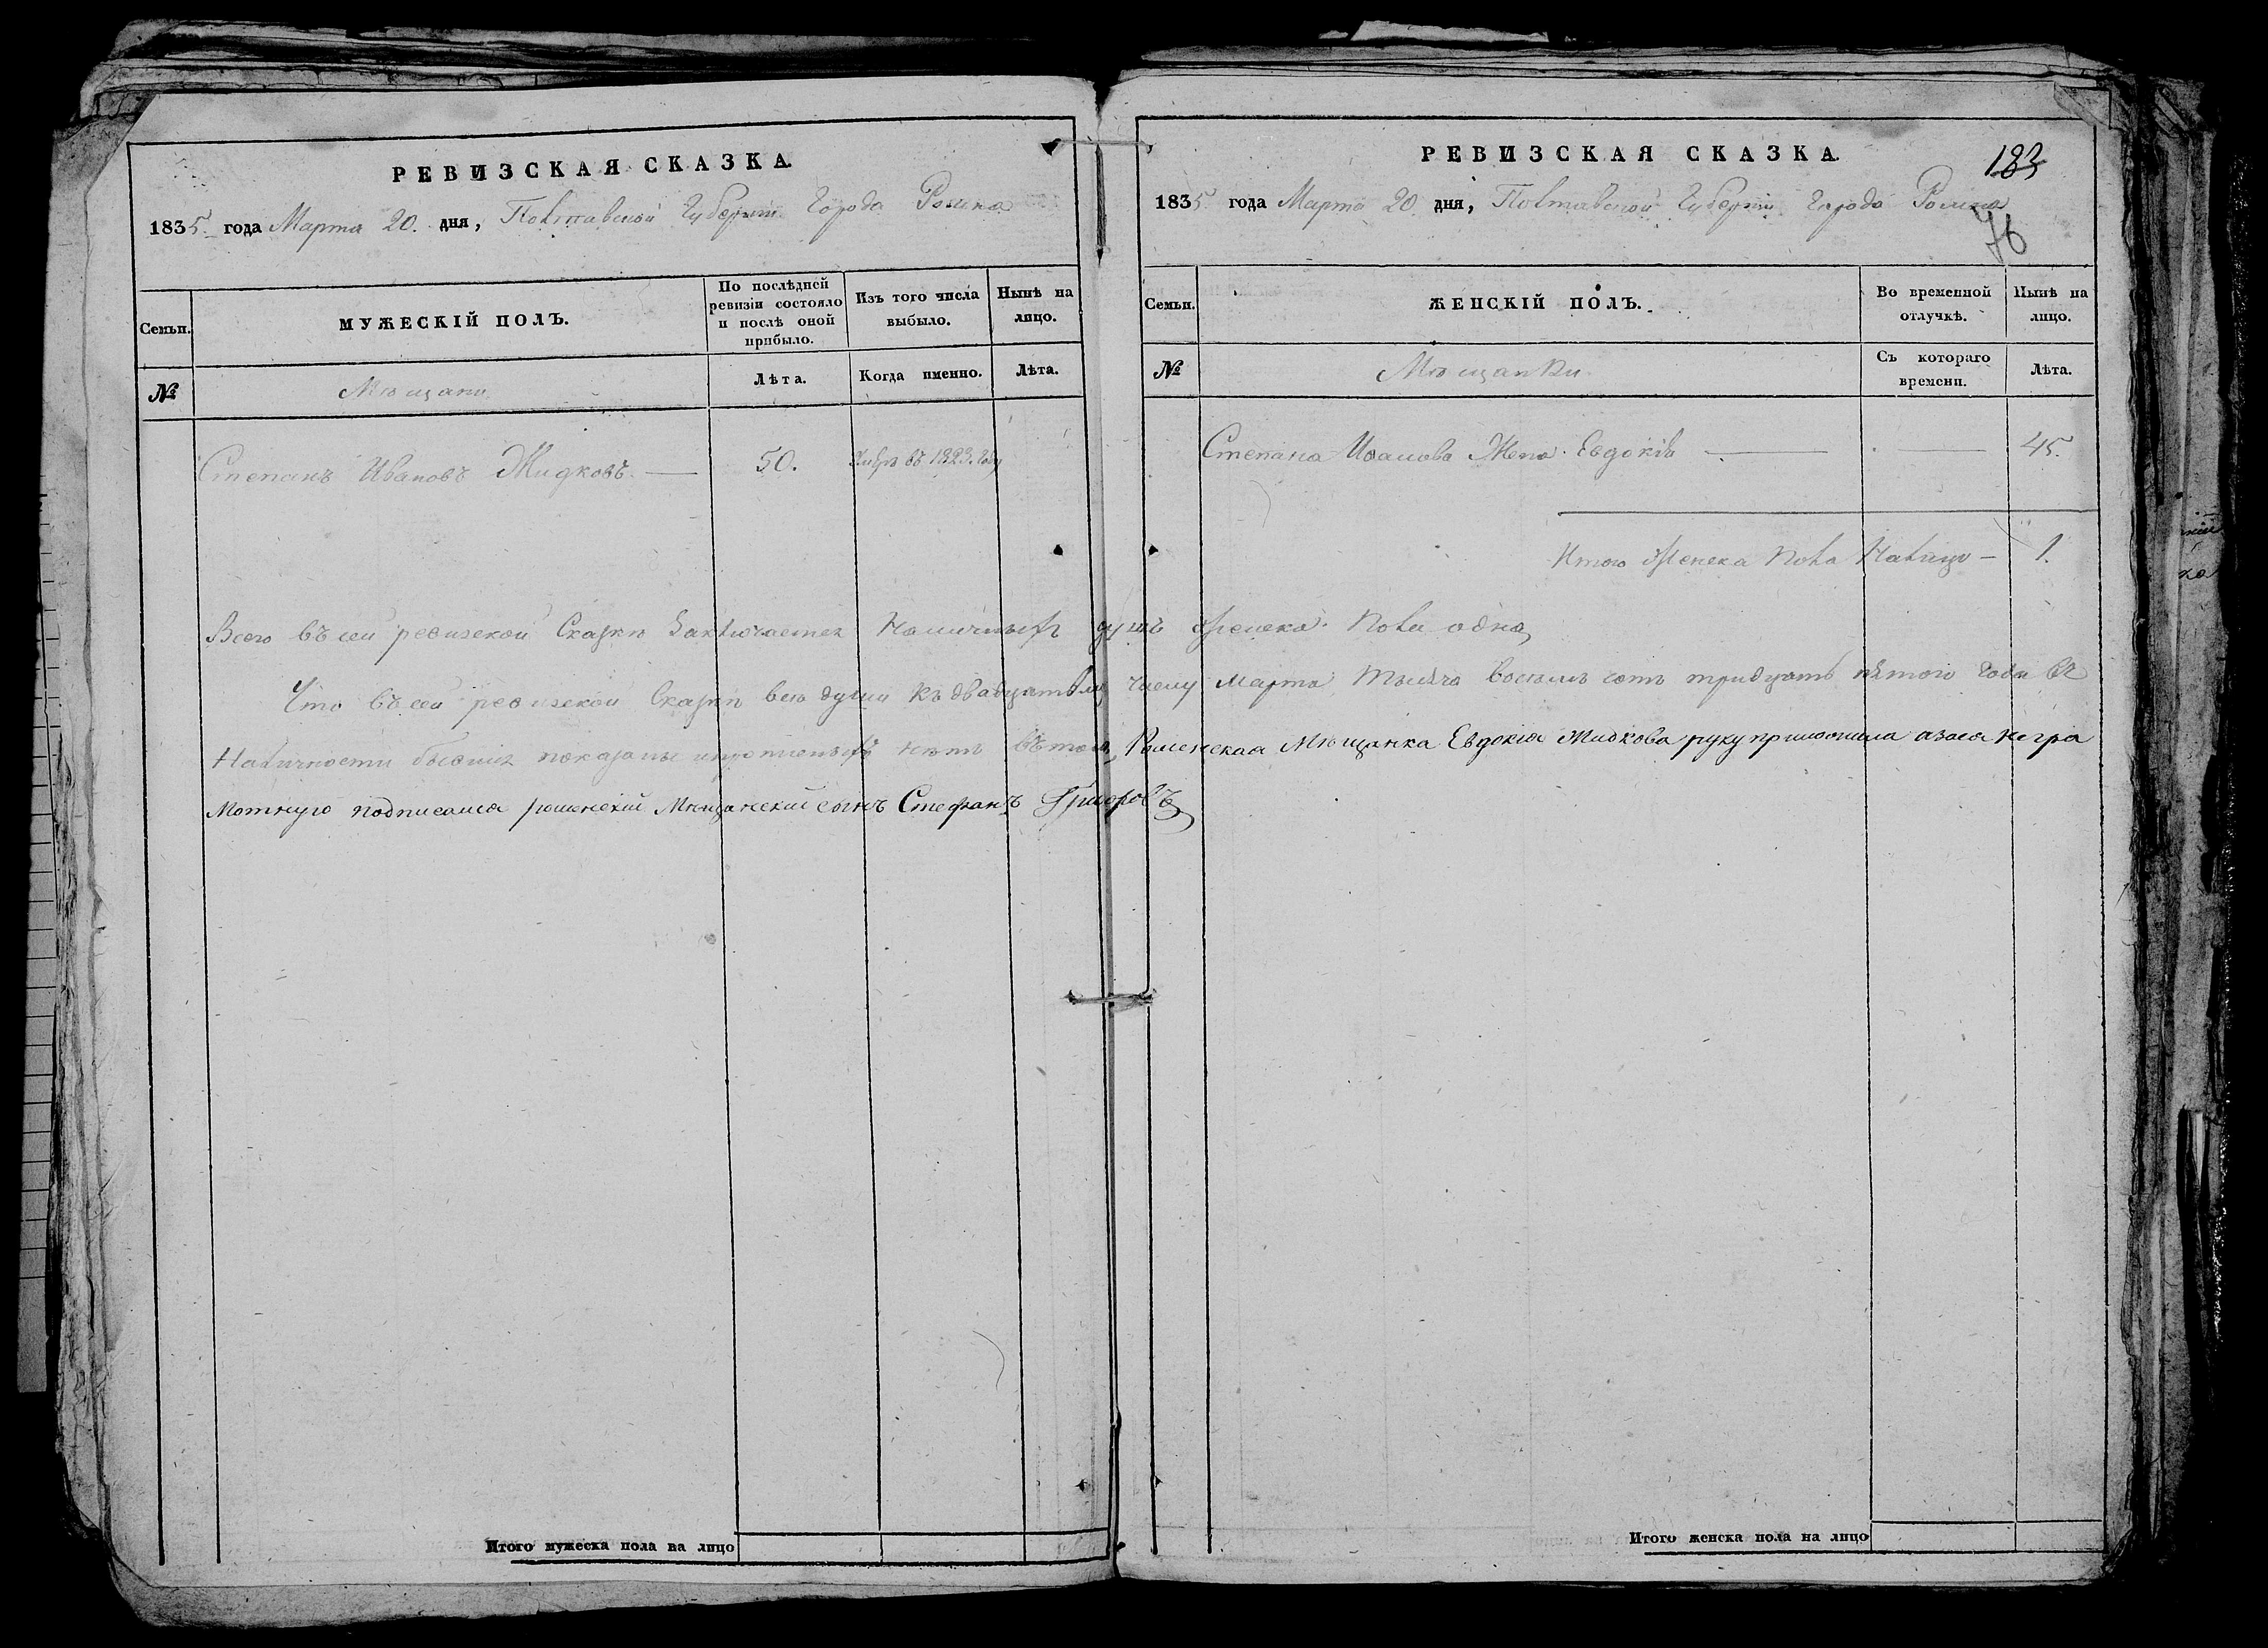 РЕВИЗСКАЯ СКАЗКА.
1835 года Марта 20. дня, Полтавской Губерніи Города Ромна
Семьи.
МУЖЕСКІЙ ПОЛЪ.
По послѣдней
ревизіи состояло
и послѣ оной
прибыло.
Изъ того числа
выбыло.
Нынѣ на
лицо.
№
Мѣщани
Лѣта.
Когда именно.
Лѣта.
Степанъ Ивановъ Жидковъ. — 50. въ 1823. году
РЕВИЗСКАЯ СКАЗКА.
183
1835 года Марта 20 дня, Полтавской Губерніи Города Ромна
76
Семьи.
ЖЕНСКІЙ ПОЛЪ.
Во временной
отлучкѣ.
Нынѣ на
лицо.
№
Мѣщанки
Съ котораго
времени.
Лѣта.
Степана Иванова Жена Евдокія — — 45.
Итого Женска Пола Налицо — 1.
Всего въ сей ревизской Сказкѣ Заключается Наличныхъ душъ Женска Пола одна,
Что въ сей ревизской Сказкѣ всѣ души къ двадцатому числу Марта тысяча восемь сотъ тридцать пятого года въ
Наличности бывшія показаны и нѣтъ въ томъ Роменская Мѣщанка Евдокія Жидкова руку приложила а за ея негра
мотную подписался роменскій Мѣщанскій сынъ Стефанъ
Итого мужеска пола на лицо
Итого женска пола на лицо